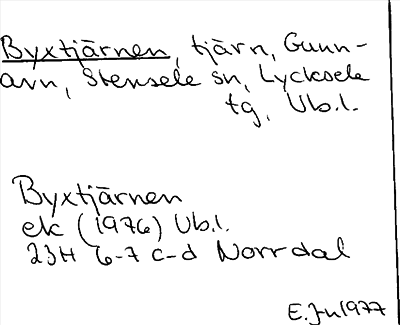 Byxtjärnen, tjärn, Gunn-
arn, Stensele sn, Lycksele
tg, Vb.l.
Byxtjärnen
ek (1976) Vb.l.
23H 6-7 c-d Norrdal
1977